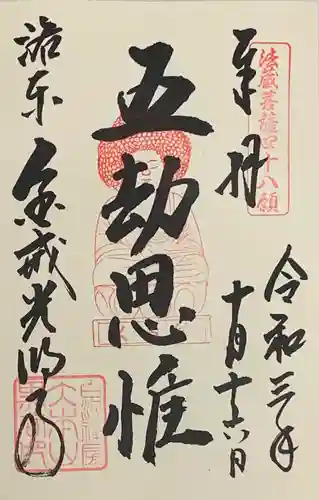 法蔵菩薩四十八願
奉拝
令和三年
十月十六日
五劫思惟
洛東
金戒光明寺